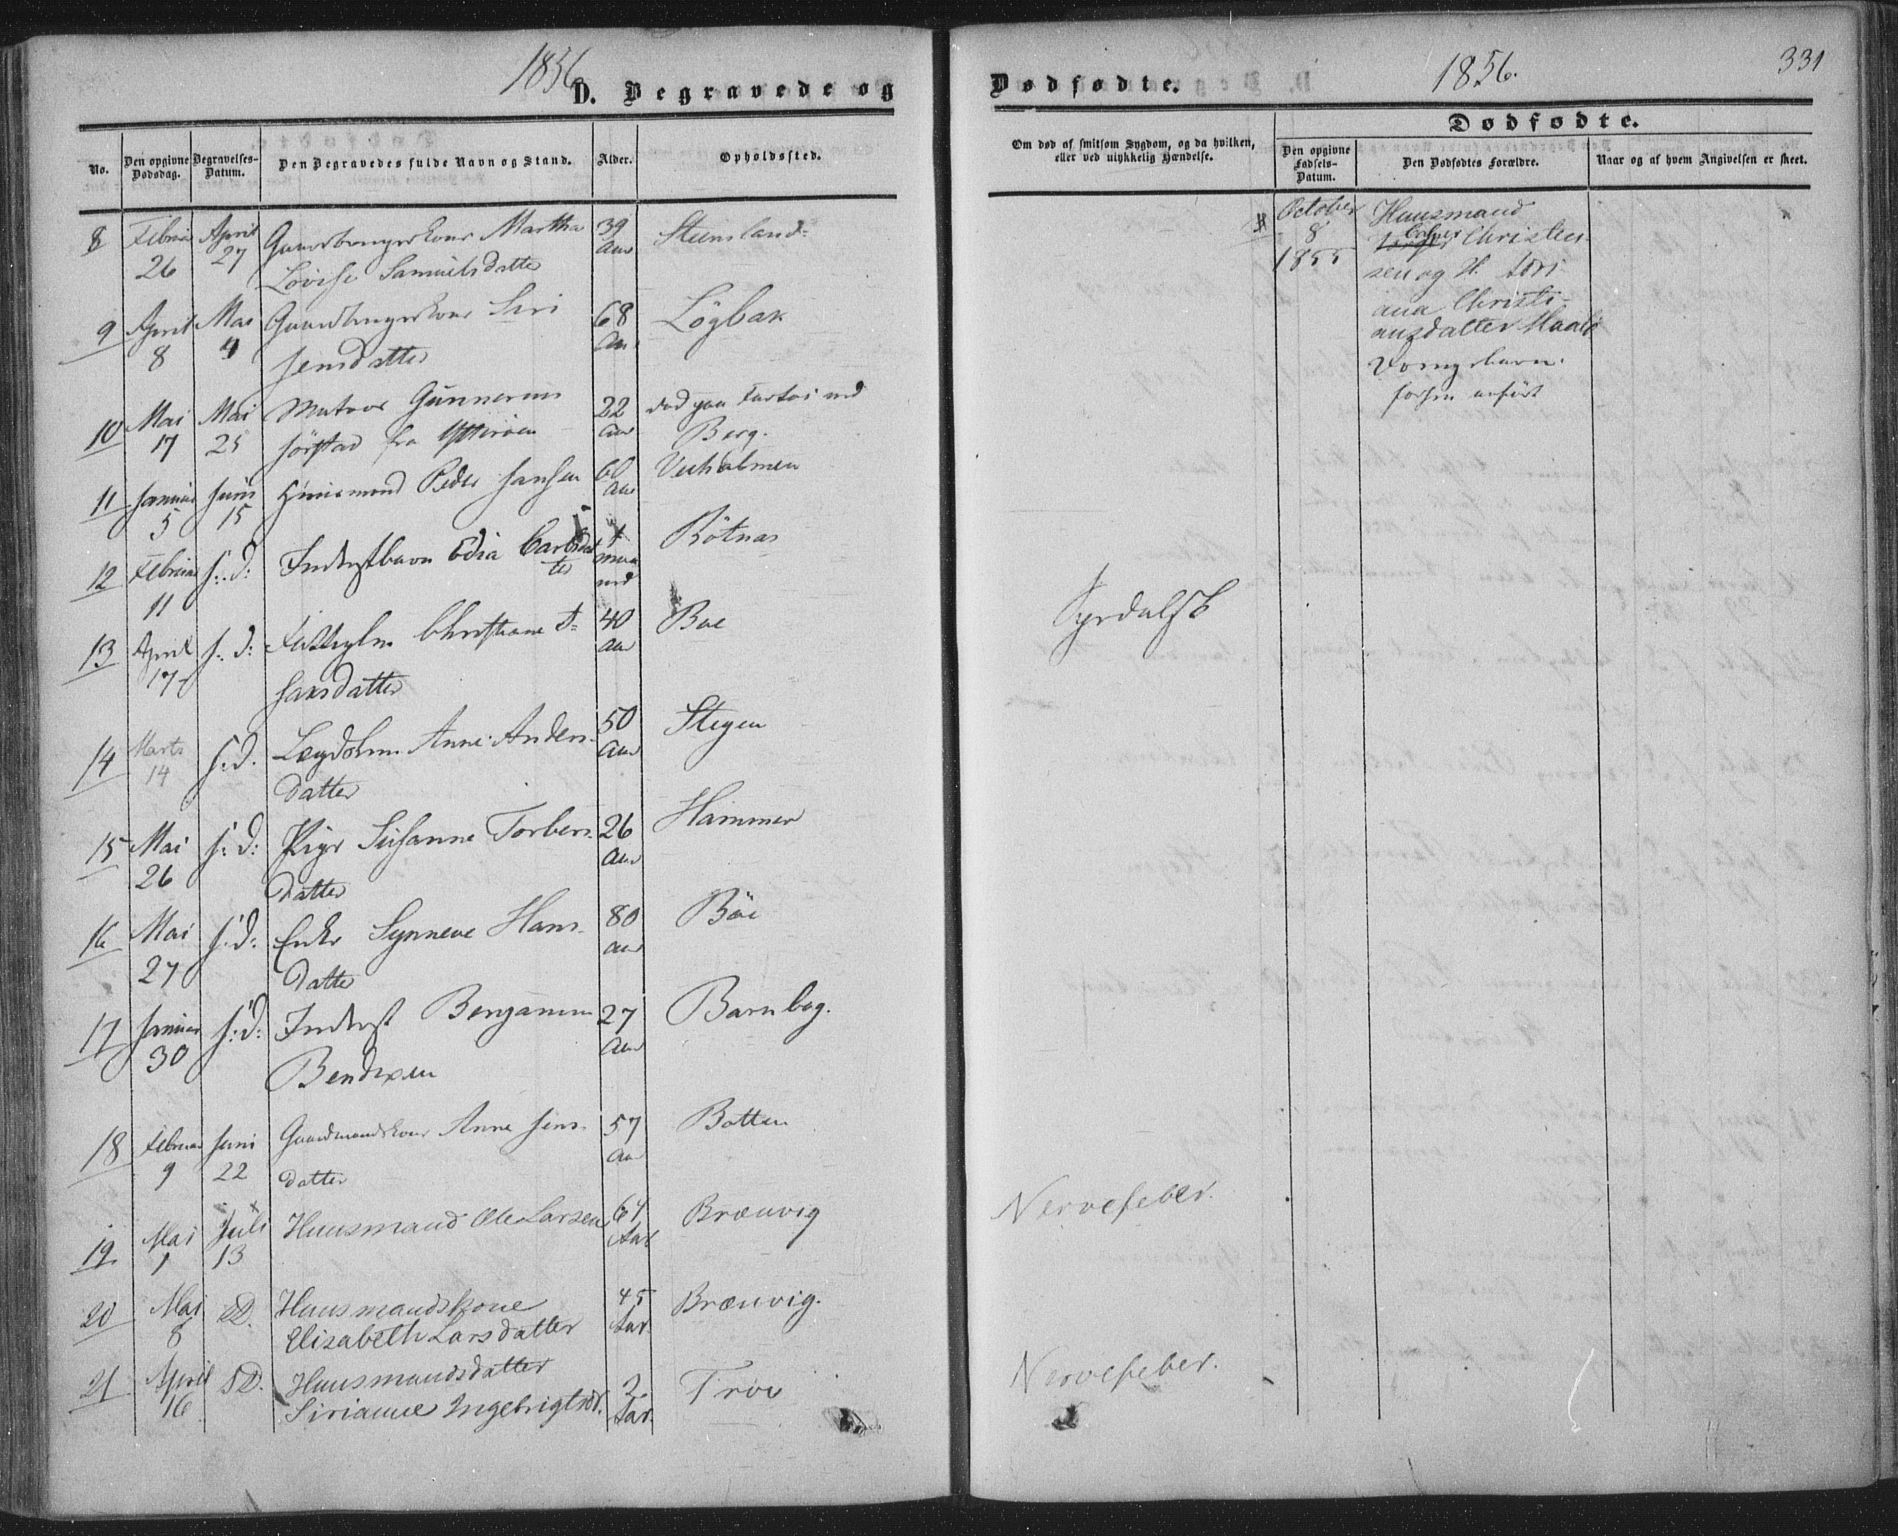 1856
D. Begravede og
No.
Den opgivne Dødsdag.
Begravelses-Datum.
Den Begravedes fulde Navn og Stand.
Alder.
Opholdssted.
8 Februar 26 April 27 Gaardbrugerkone Martha 39 Aar Steensland
Lovise Samuelsdatter
9 April 8 Mai 4 Gaardbrugerkone Siri 68 Aar Lögbak
Jensdatter
10 Mai 17 Mai 25 Matros Gunnerius 22 Aar død paa Fartøi ved
Sörstad fra Ytteröen Berg.
11 Januar 5 Juni 15 Huusmand Peder Jansen 60 Aar Veeholmen
12 Februar 11 s: d: Inderstbarn Edia Carlsdatter 4 Bötnæs
13 April 17 s: d: Christiane 40 Aar Boe
datter
14 Marts 14 s. d. Lægdslem Anne Anders- 50 Aar Stegen
datter
15 Mai 26 s: d: Pige Susanne Torbers- 26 Aar Hammer
datter
16 Mai 27 s. d: Enke Synneve Hans- 80 Aar Böe
datter
17 Januar 30 s: d: Inderst Benjamin 27 Aar Barnbog.
Bendixen
18 Februar 9 Juni 22 Gaardmandskone Anne Jens- 57 Aar Botten
datter
19 Mai 1 Juli 13 Huusmand Ole Larsen 64 Aar Brænvig
20 Mai 8 S D. Huusmandskone 45 Aar Brænvig.
Elisabeth Larsdatter
21 April 16 S D. Huusmandsdatter 2 Aar. Troe
Sirianne Ingebrigtsdr.
Dødfødte.
1856.
331
Om død af smitsom Sygdom, og da hvilken,
eller ved ulykkelig Hændelse.
Dødfødte.
Den opgivne Fødsels-Datum.
Den Dødfødtes Forældre.
Naar og af hvem Angivelsen er skeet.
October Huusmand
8 Christen-
1855 sen og H.
ana Christi-
ansdatter
anført
Nervefeber.
Nervefeber.